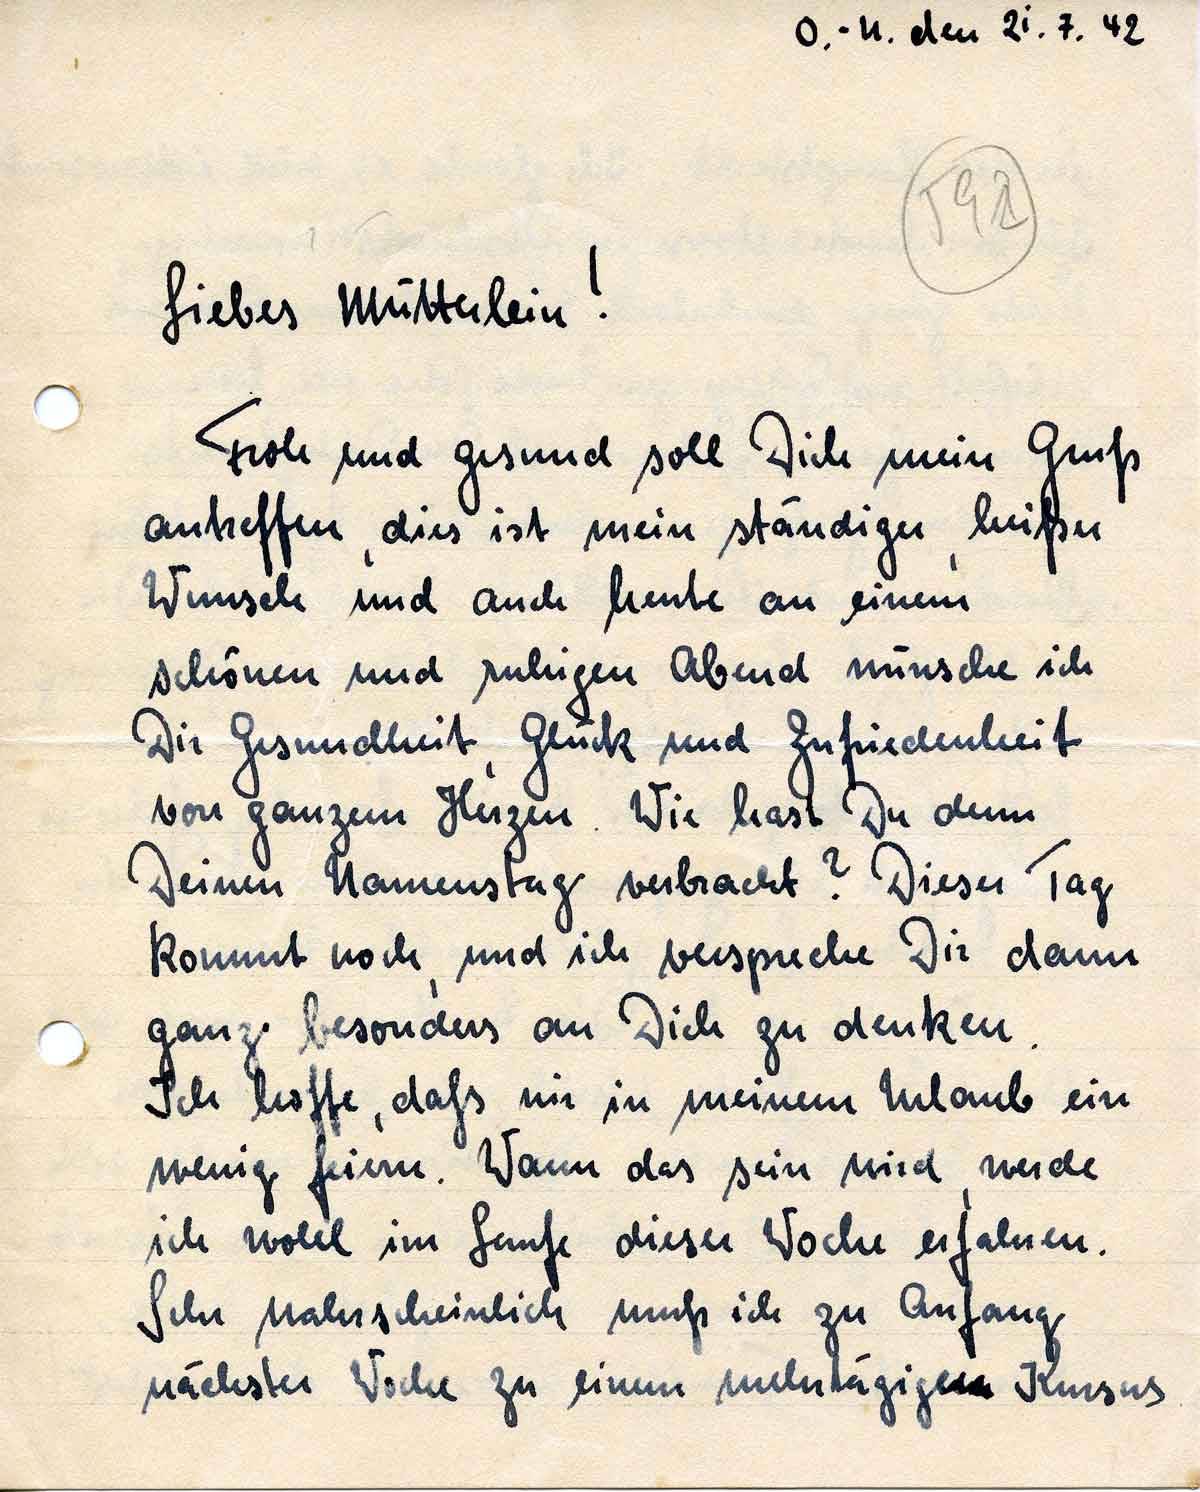 O.-U. den 21.7.42
592
Liebes Mütterlein!
Froh und gesund soll Dich mein Gruß
antreffen, dies ist mein ständiger, heißer
Wunsch und auch heute an einem
schönen und ruhigen Abend wünsche ich
Dir Gesundheit, Glück und Zufriedenheit
von ganzem Herzen. Wie hast Du denn
Deinen Namenstag verbracht? Dieser Tag
kommt noch, und ich verspreche Dir dann
ganz besonders an Dich zu denken.
Ich hoffe, daß wir in meinem Urlaub ein
wenig feiern. Wann das sein wird, werde
ich wohl im Laufe dieser Woche erfahren.
Sehr wahrscheinlich muß ich zu Anfang
nächster Woche zu einem mehrtägigen Kursus